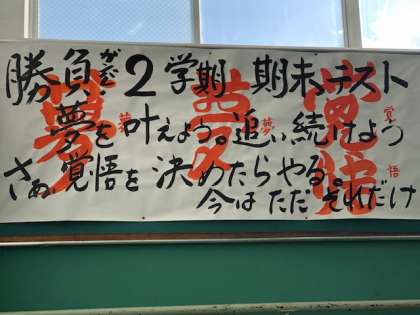 勝負だ 2学期 期末テスト
夢を叶えよう。追い続けよう
さぁ覚悟を決めたらやる。
今はただそれだけ
夢
夢
覚悟